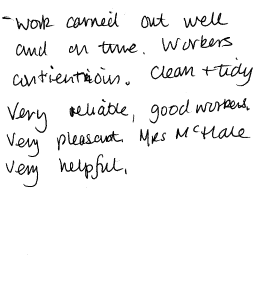 - Work carried out well
and on time. Workers
contientious. Clean + tidy
Very reliable, good workers.
Very pleasant. Mrs McHale
very helpful.